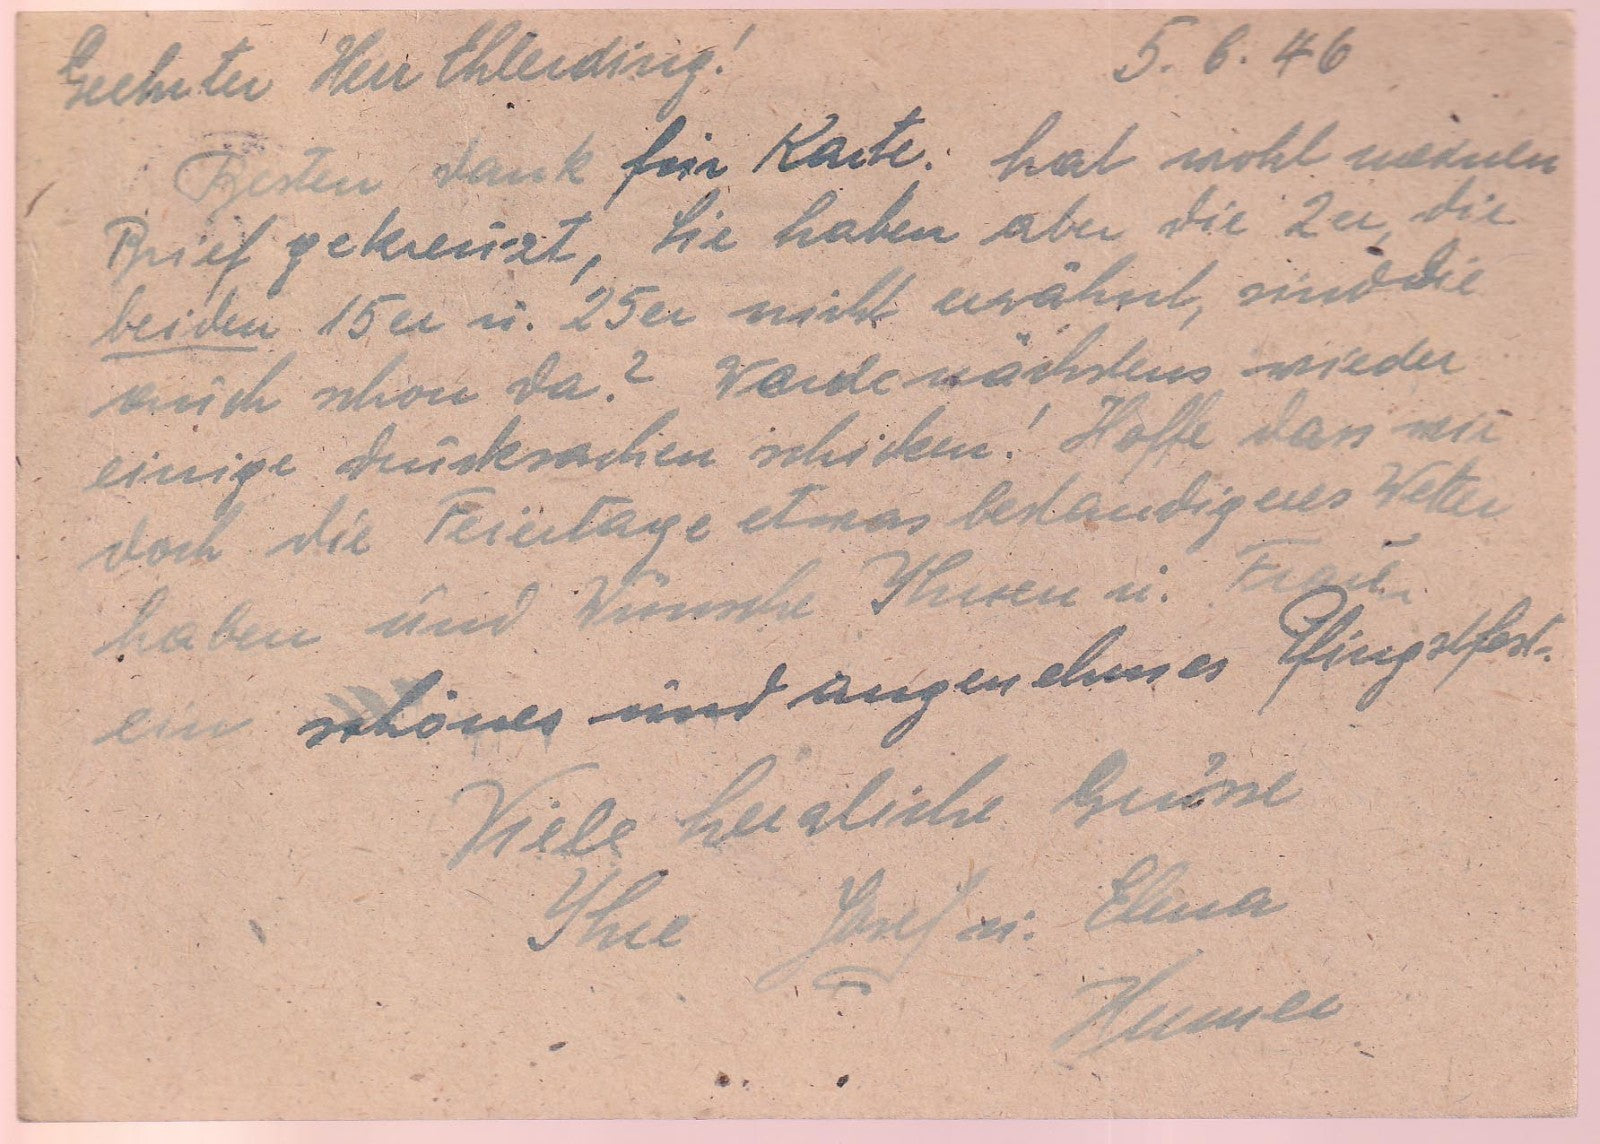 Geehrter Herr Ehlerding! 5. 6. 46
Besten Dank für Karte. hat wohl meinen
Brief gekreuzt, Sie haben aber die 2er, die
beiden 15er u. 25er nicht erwähnt, sind die
auch schon da? Werde nächstens wieder
einige Drucksachen schicken! Hoffe dass wir
doch die Feiertage etwas beständigeres Wetter
haben und Wünsche Ihnen u. Frau
ein schönes und angenehmes Pfingstfest.
Viele herzliche Grüsse
Ihre Josef u. Elena